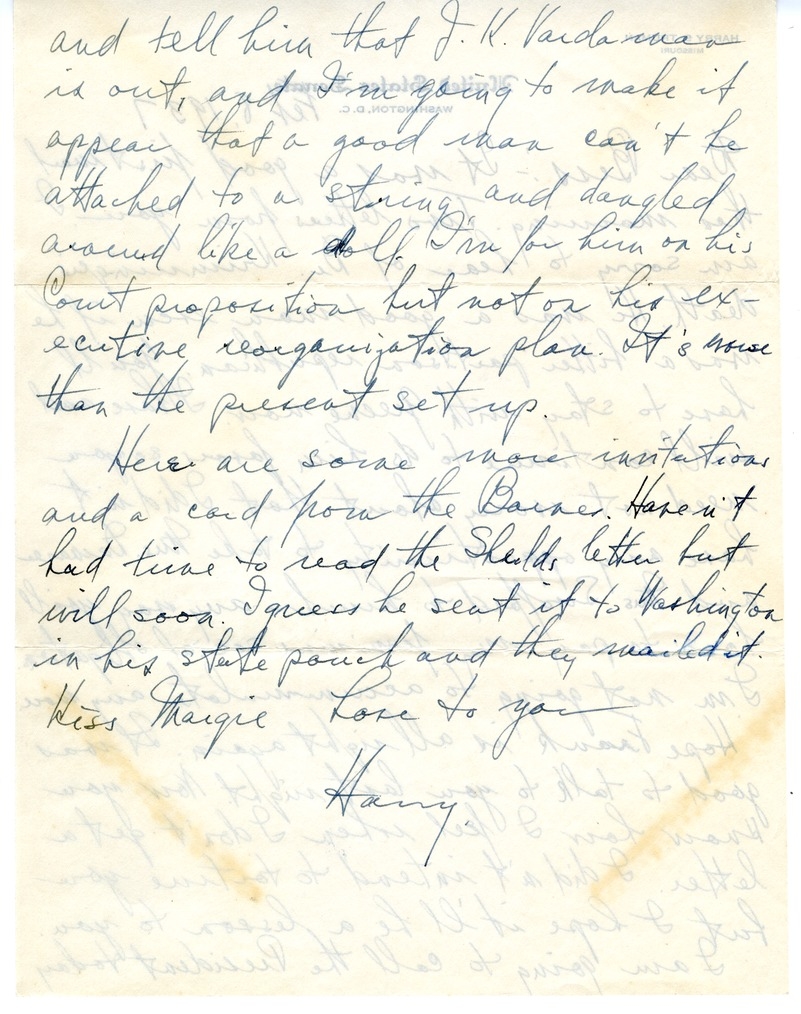 and tell him that J. K. Vardaman
is out, and I'm going to make it
appear that a good man can't be
attached to a string and dangled
around like a doll. I'm for him on his
Court proposition but not on his ex-
ecutive reorganization plan. It's worse
than the present set up.
Here are some more invitations
and a card from the Barnes. Haven't
had time to read the Shields letter but
will soon. I guess he sent it to Washington
in his state pouch and they mailed it.
Kiss Margie Love to you
Harry.